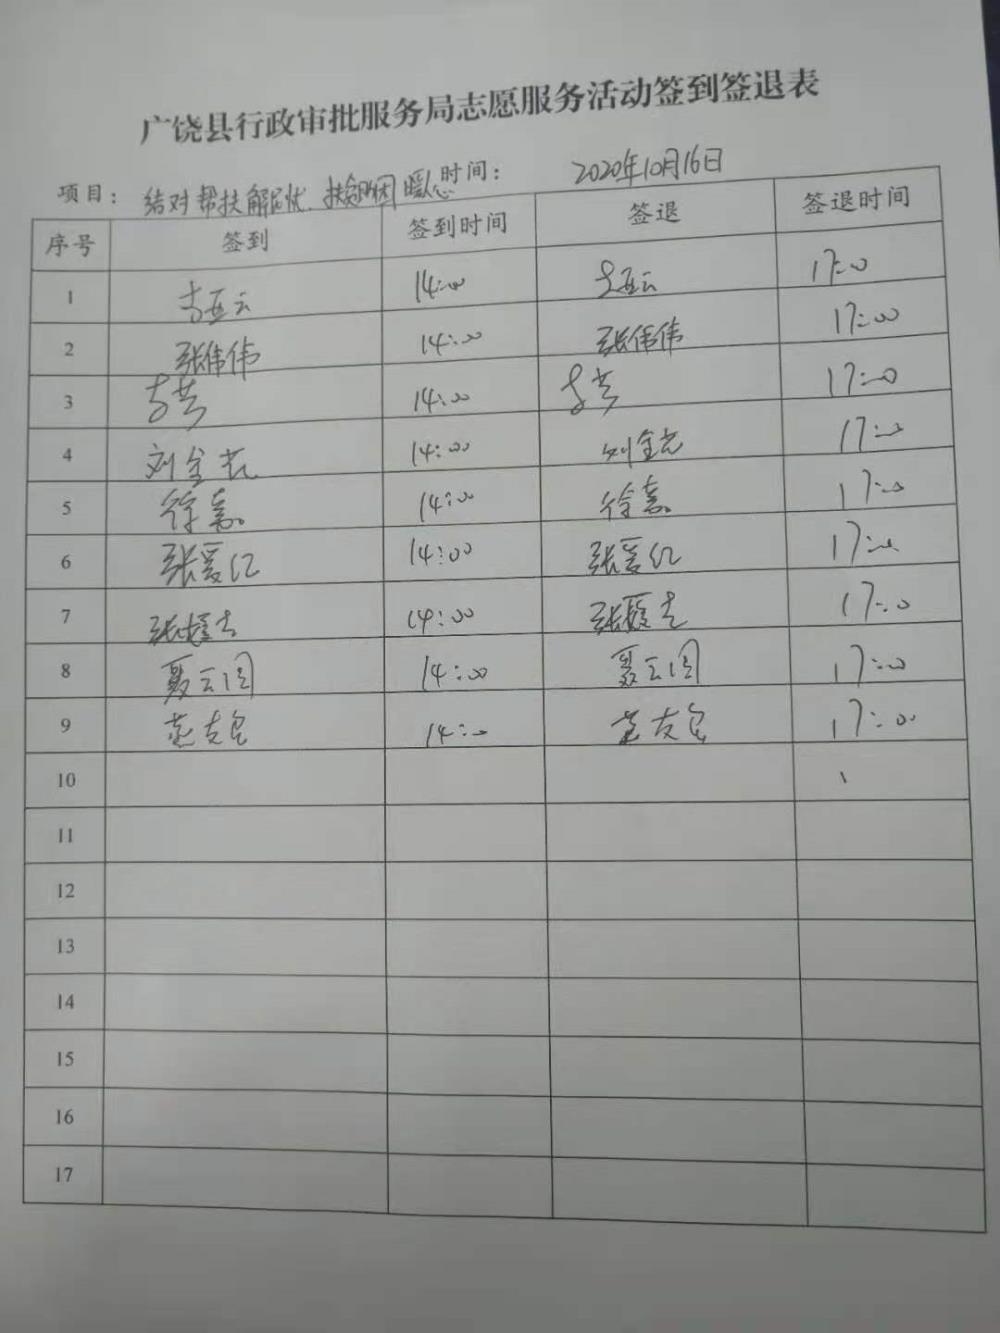 广饶县行政审批服务局志愿服务活动签到签退表
项目： 结对帮扶解忧 扶贫 暖心 时间： 2020年10月16日
序号 签到 签到时间 签退 签退时间
1 李亚云 14:00 李亚云 17:00
2 张伟伟 14:00 张伟伟 17:00
3 14:00 17:00
4 刘金 14:00 刘金 17:00
5 徐嘉 14:00 徐嘉 17:00
6 张爱红 14:00 张爱红 17:00
7 张 14:00 张 17:00
8 聂云 14:00 聂云 17:00
9 14:00 17:00
10
11
12
13
14
15
16
17